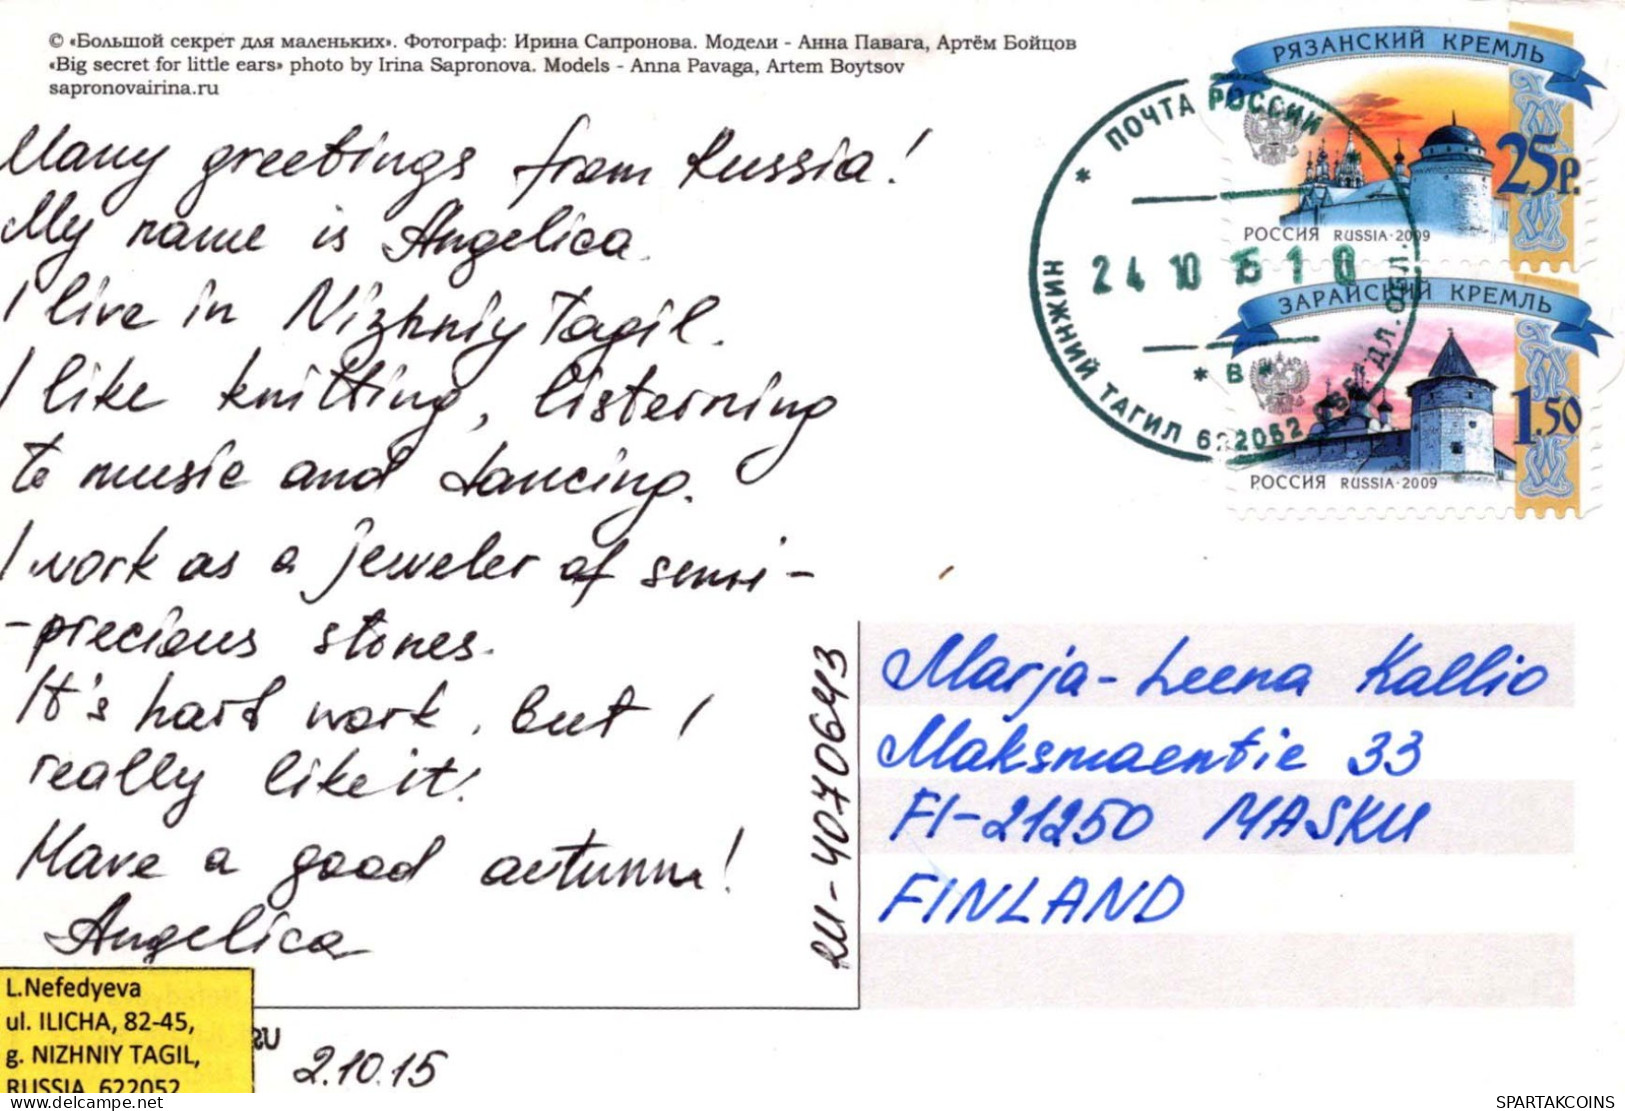 © «Большой секрет для маленьких». Фотограф: Ирина Сапронова. Модели - Анна Павага, Артём Бойцов
«Big secret for little ears» photo by Irina Sapronova. Models - Anna Pavaga, Artem Boytsov
sapronovairina.ru
Many greetings from Russia!
My name is Angelica.
I live in Nizhniy Tagil.
I like knitting, listerning
to music and dancing.
I work as a jeweler of semi-
-precious stones.
It's hard work, but I
really like it!
Have a good autumn!
Angelica
L.Nefedyeva
ul. ILICHA, 82-45,
g. NIZHNIY TAGIL,
RUSSIA, 622052
2.10.15
RU-4070643
РЯЗАНСКИЙ КРЕМЛЬ
25р.
РОССИЯ RUSSIA·2009
ЗАРАЙСКИЙ КРЕМЛЬ
1.50
РОССИЯ RUSSIA·2009
* ПОЧТА РОССИИ
24 10 15 1 0
* В *
НИЖНИЙ ТАГИЛ 622052 ОБЛ.
Marja-Leena Kallio
Maksmaentie 33
FI-21250 MASKU
FINLAND
SPARTAKCOINS